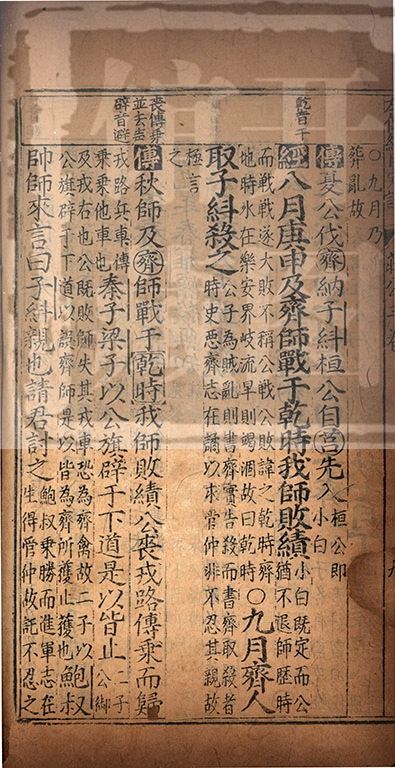 ○九月乃
葬亂故
傳夏公伐齊納子糾桓公自莒先入
桓公即
小白
乾音干
經八月庚申及齊師戰于乾時我師敗績
小白既定而公
猶不退師歷時
而戰戰遂大敗不稱公戰公敗諱之乾時齊
地時水在樂安界岐流旱則竭涸故曰乾時
○九月齊人
取子糾殺之
公子為賊亂則書齊實告殺而書齊取殺者
時史惡齊志在譎以求管仲非不忍其親故
極言
之
喪傳乘
並去聲
辟音避
傳秋師及齊師戰于乾時我師敗績公喪戎路傳乘而歸
戎路兵車傳
乘乘他車也
秦子梁子以公旗辟于下道是以皆止
二子
公御
及戎右也公既敗師失其戎車恐為齊禽故二子以
公旗辟于下道以誤齊師是以皆為齊所獲止獲也
鮑叔
帥師來言曰子糾親也請君討之
鮑叔乘勝而進軍志在
生得管仲故託不忍之